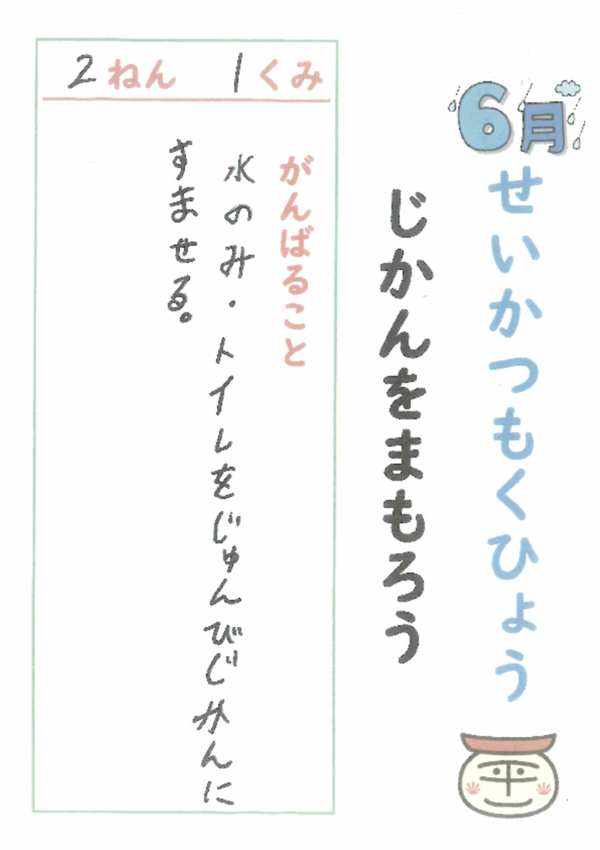 6月せいかつもくひょう
じかんをまもろう
2ねん 1くみ
がんばること
水のみ・トイレをじゅんびじかんに
すませる。